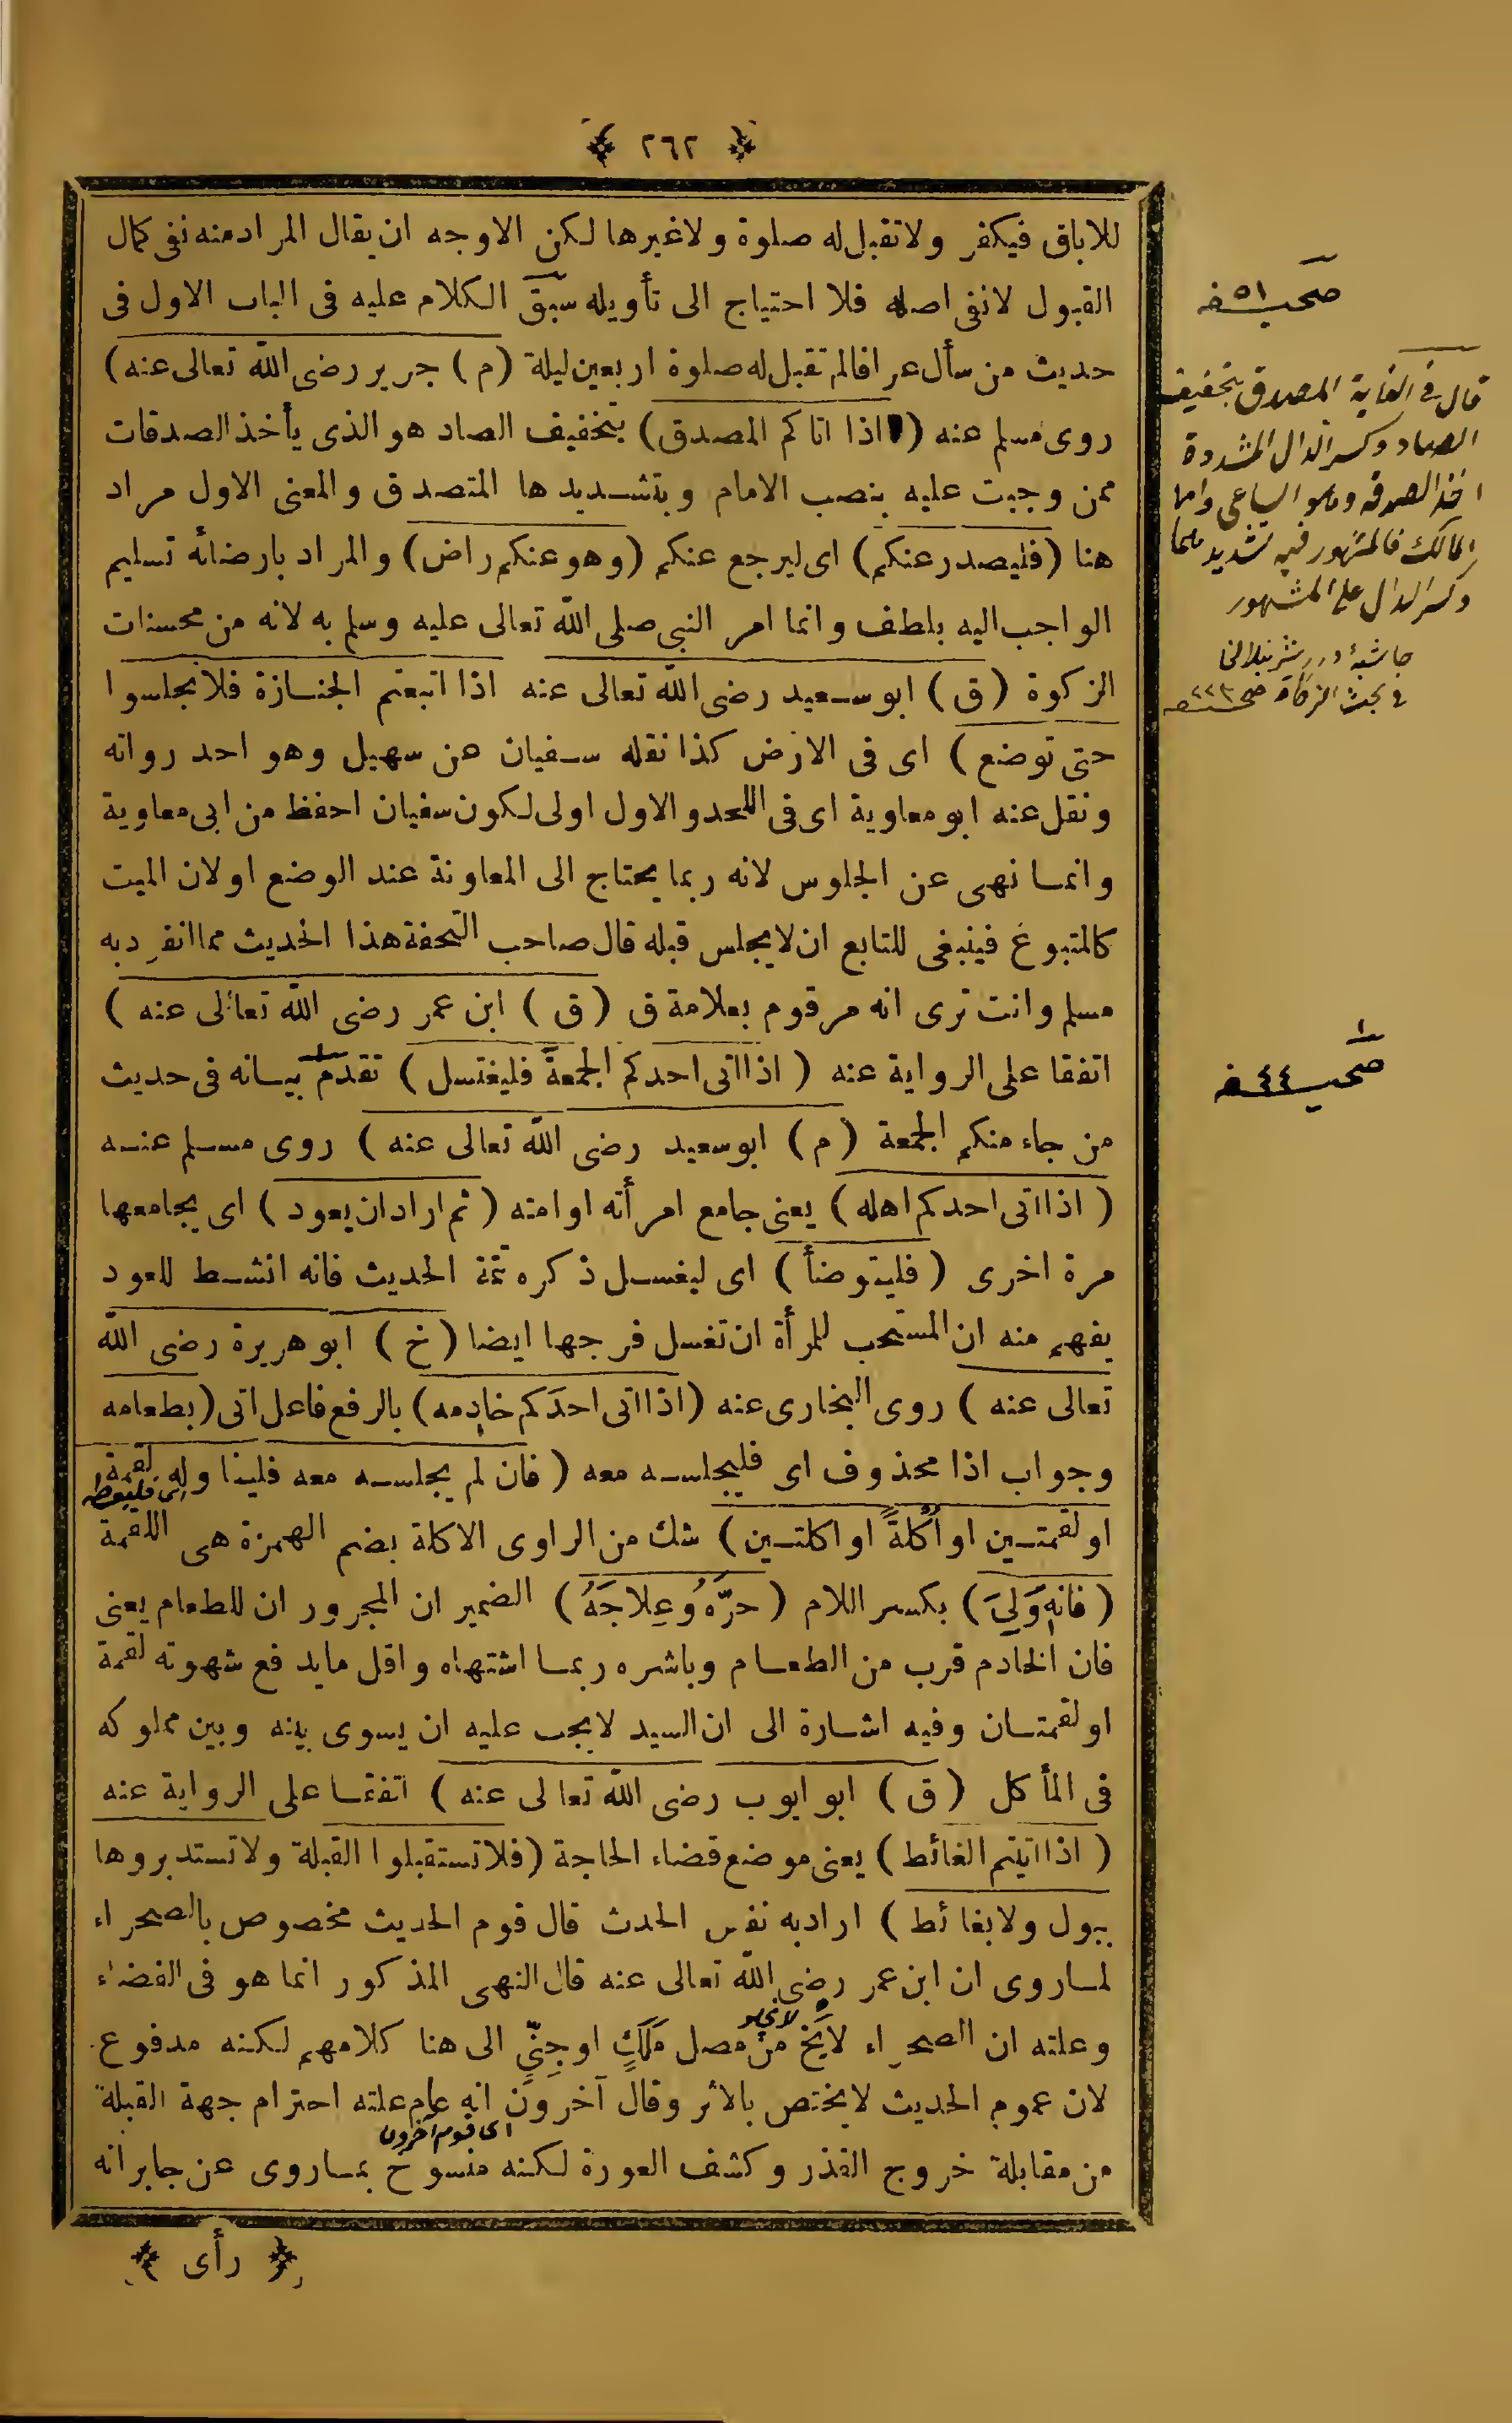 ﴿ ٢٦٢ ﴾
للاباق فيكفر ولا تقبل له صلوة ولا غيرها لكن الاوجه ان يقال المراد منه نفى كمال
القبول لا نفى اصله فلا احتياج الى تأويله سبق الكلام عليه فى الباب الاول فى
حديث من سأل عرافا لم تقبل له صلوة اربعين ليلة (م) جرير رضى الله تعالى عنه)
روى مسلم عنه (اذا اتاكم المصدق) بتخفيف الصاد هو الذى يأخذ الصدقات
ممن وجبت عليه بنصب الامام وبتشديدها المتصدق والمعنى الاول مراد
هنا (فليصدر عنكم) اى ليرجع عنكم (وهو عنكم راض) والمراد بارضائه تسليم
الواجب اليه بلطف وانما امر النبى صلى الله تعالى عليه وسلم به لانه من محسنات
الزكوة (ق) ابو سعيد رضى الله تعالى عنه اذا اتبعتم الجنازة فلا تجلسوا
حتى توضع) اى فى الارض كذا نقله سفيان عن سهيل وهو احد رواته
ونقل عنه ابو معاوية اى فى اللحد والاول اولى لكون سفيان احفظ من ابى معاوية
وانما نهى عن الجلوس لانه ربما يحتاج الى المعاونة عند الوضع او لان الميت
كالمتبوع فينبغى للتابع ان لا يجلس قبله قال صاحب التحفة هذا الحديث مما انفرد به
مسلم وانت ترى انه مرقوم بعلامة ق (ق) ابن عمر رضى الله تعالى عنه)
اتفقا على الرواية عنه (اذا اتى احدكم الجمعة فليغتسل) تقدم بيانه فى حديث
من جاء منكم الجمعة (م) ابو سعيد رضى الله تعالى عنه) روى مسلم عنه
(اذا اتى احدكم اهله) يعنى جامع امرأته او امته (ثم اراد ان يعود) اى يجامعها
مرة اخرى (فليتوضأ) اى ليغسل ذكره تتمة الحديث فانه انشط للعود
يفهم منه ان المستحب للمرأة ان تغسل فرجها ايضا (خ) ابو هريرة رضى الله
تعالى عنه) روى البخارى عنه (اذا اتى احدَكم خادِمه) بالرفع فاعل اتى (بطعامه
وجواب اذا محذوف اى فليجلسه معه (فان لم يجلسه معه فليناوله لقمة
اى فليعطه
او لقمتين او اُكلةً او اكلتين) شك من الراوى الاكلة بضم الهمزة هى اللقمة
(فانه وَلِيَ) بكسر اللام (حرَّهُ وعِلاجَهُ) الضمير ان المجرور ان للطعام يعنى
فان الخادم قرب من الطعام وباشره ربما اشتهاه واقل ما يدفع شهوته لقمة
او لقمتان وفيه اشارة الى ان السيد لا يجب عليه ان يسوى بينه وبين مملوكه
فى المأكل (ق) ابو ايوب رضى الله تعالى عنه) اتفقا على الرواية عنه
(اذا اتيتم الغائط) يعنى موضع قضاء الحاجة (فلا تستقبلوا القبلة ولا تستدبروها
ببول ولا بغائط) اراد به نفس الحدث قال قوم الحديث مخصوص بالصحراء
لما روى ان ابن عمر رضى الله تعالى عنه قال النهى المذكور انما هو فى الفضاء
لا يخلو
وعلته ان الصحراء لا يَخ من مصل مَلَكٍ او جِنّيٍ الى هنا كلامهم لكنه مدفوع
لان عموم الحديث لا يختص بالاثر وقال آخرون انه عام علته احترام جهة القبلة
اى قوم آخرون
من مقابلة خروج القذر وكشف العورة لكنه منسوخ بما روى عن جابر انه
﴿ رأى ﴾
صحيفه ٥١
قال فى الغاية المصدق بتخفيف
الصاد وكسر الدال المشددة
اخذ الصدقه وهو الساعى واما
المالك فالمشهور فيه تشديدهما
وكسر الدال على المشهور
حاشيۀ درر شرنبلالى
فى بحث الزكاة صحيفه ٢٢٣
صحيفه ٤٤